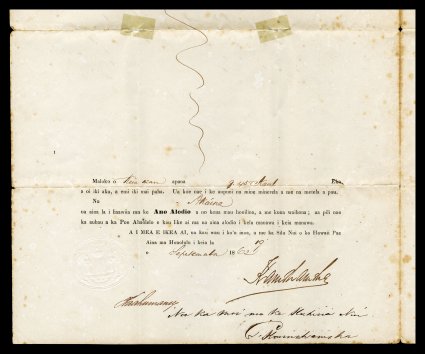 Maloko o apana Eka
a oi iki aku, a emi iki mai paha. Ua koe nae i ke aupuni na mine minerela a me na metela a pau.
No Nkaina
ua aina la i haawiia ma ke Ano Alodio a no kona mau hooilina, a me kona waihona; ua pili nao
ka auhau a ka Poe Ahaolelo e kau like ai ma na aina alodio i kela manawa i keia manawa.
A I MEA E IKEA AI, ua kau wau i ko'u inoa, a me ka Sila Nui o ko Hawaii Pae
Aina ma Honolulu i keia la 19
o Septemaba 1862
Kamehameha
Kaahumanu
Na ka moi, ma ke Kuhina Nui
Kamehameha